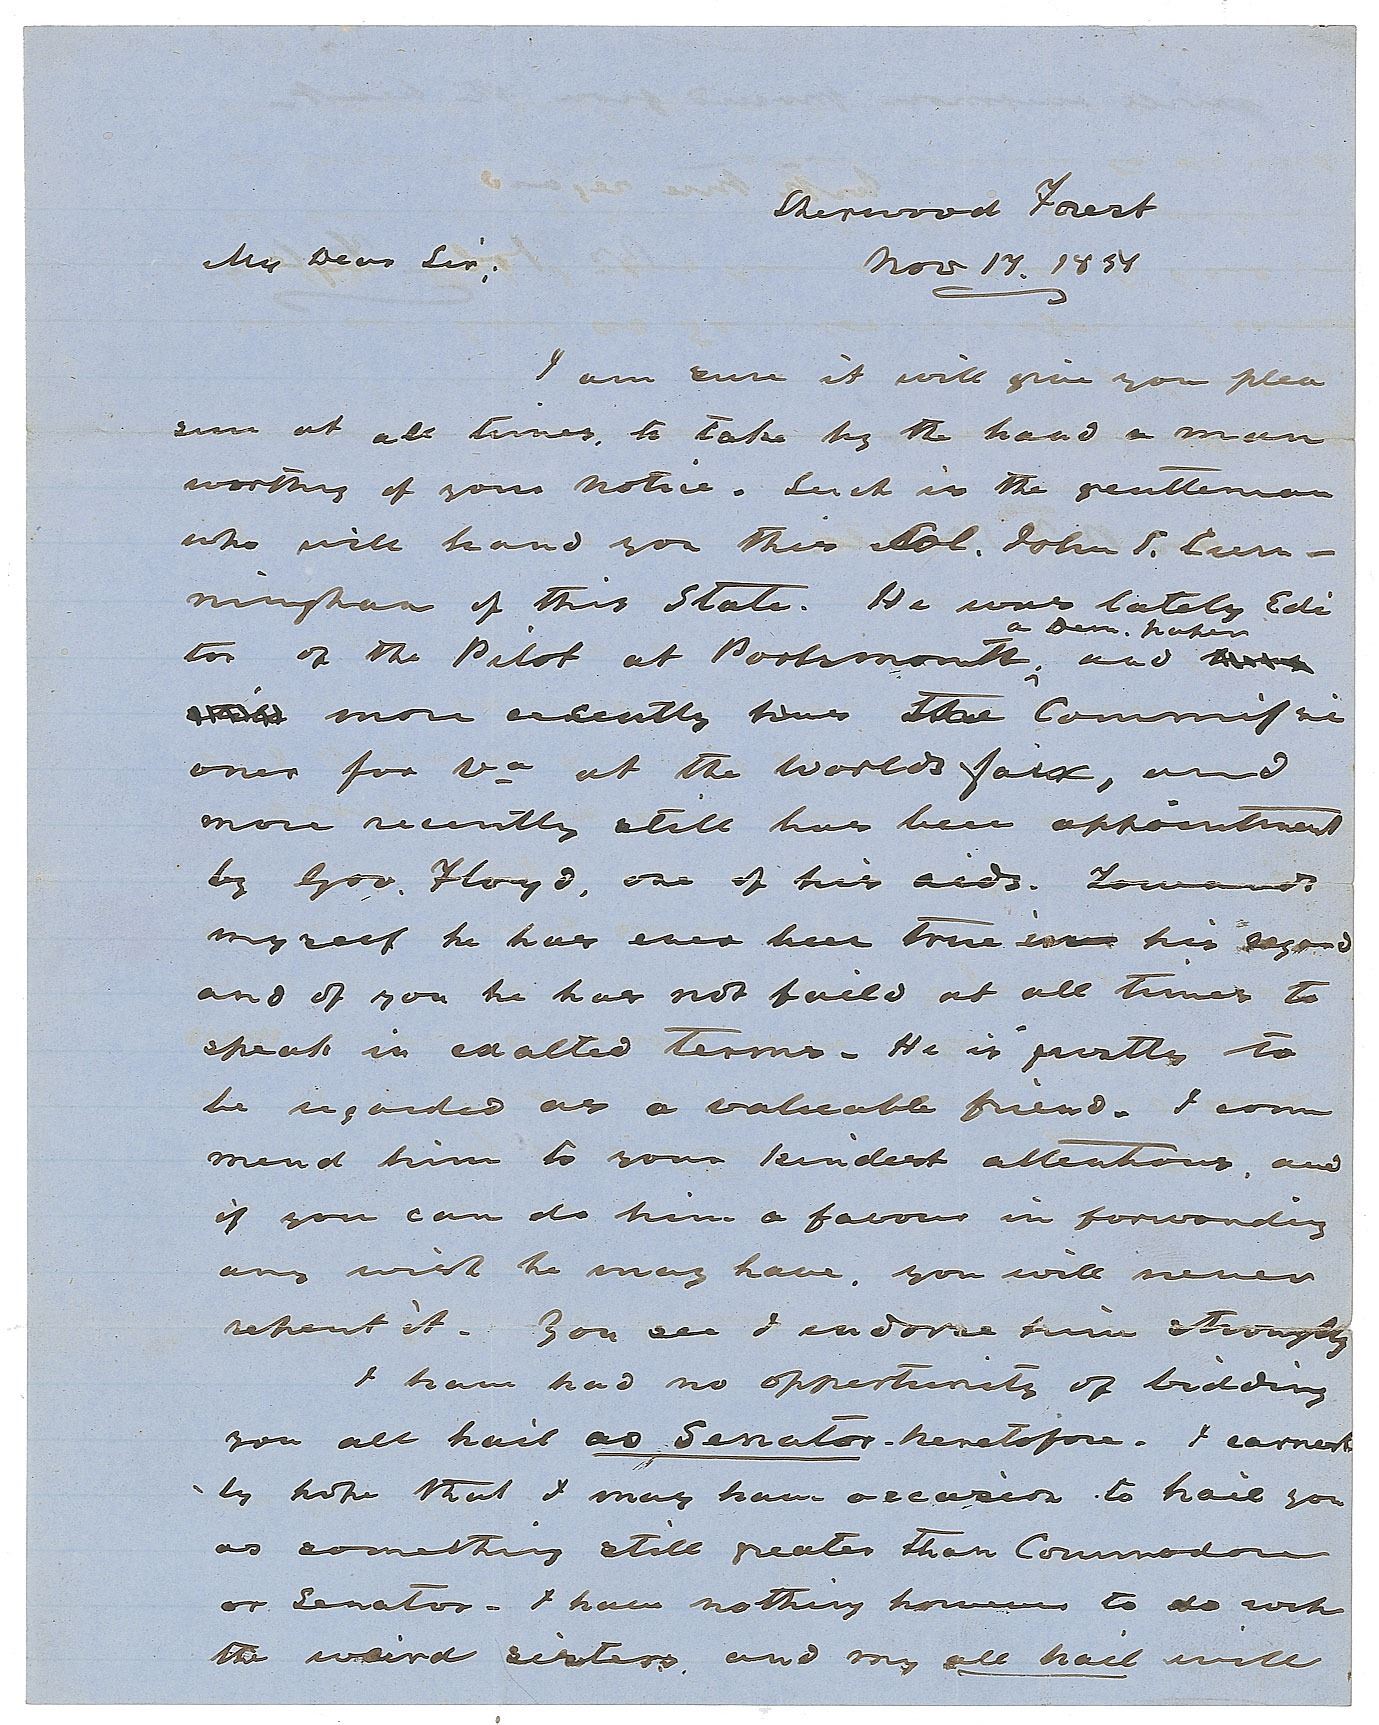 Sherwood Forest
My Dear Sir,
Nov 17. 1851
I am sure it will give you plea
sure at all times, to take by the hand a man
worthy of your notice. Such is the gentleman
who will hand you this Col. John T. Cun-
ningham of this State. He was lately Edi
a Dem. paper
tor of the Pilot at Portsmouth, and
more recently was the Commissi
oner for Va at the worlds fair, and
more recently still has been appointment
by Gov. Floyd, one of his aids. Towards
myself he has ever been true in his regard
and of you he has not faild at all times to
speak in exalted terms. He is justly to
be regarded as a valuable friend. I com
mend him to your kindest attentions, and
if you can do him a favour in forwarding
any wish he may have, you will never
repent it. You see I endorse him strongly
I have had no opportunity of bidding
you all hail as Senator heretofore. I earnest
ly hope that I may have occasion to hail you
as something still greater than Commodore
or Senator. I have nothing however to do with
the weird sisters, and my all hail will